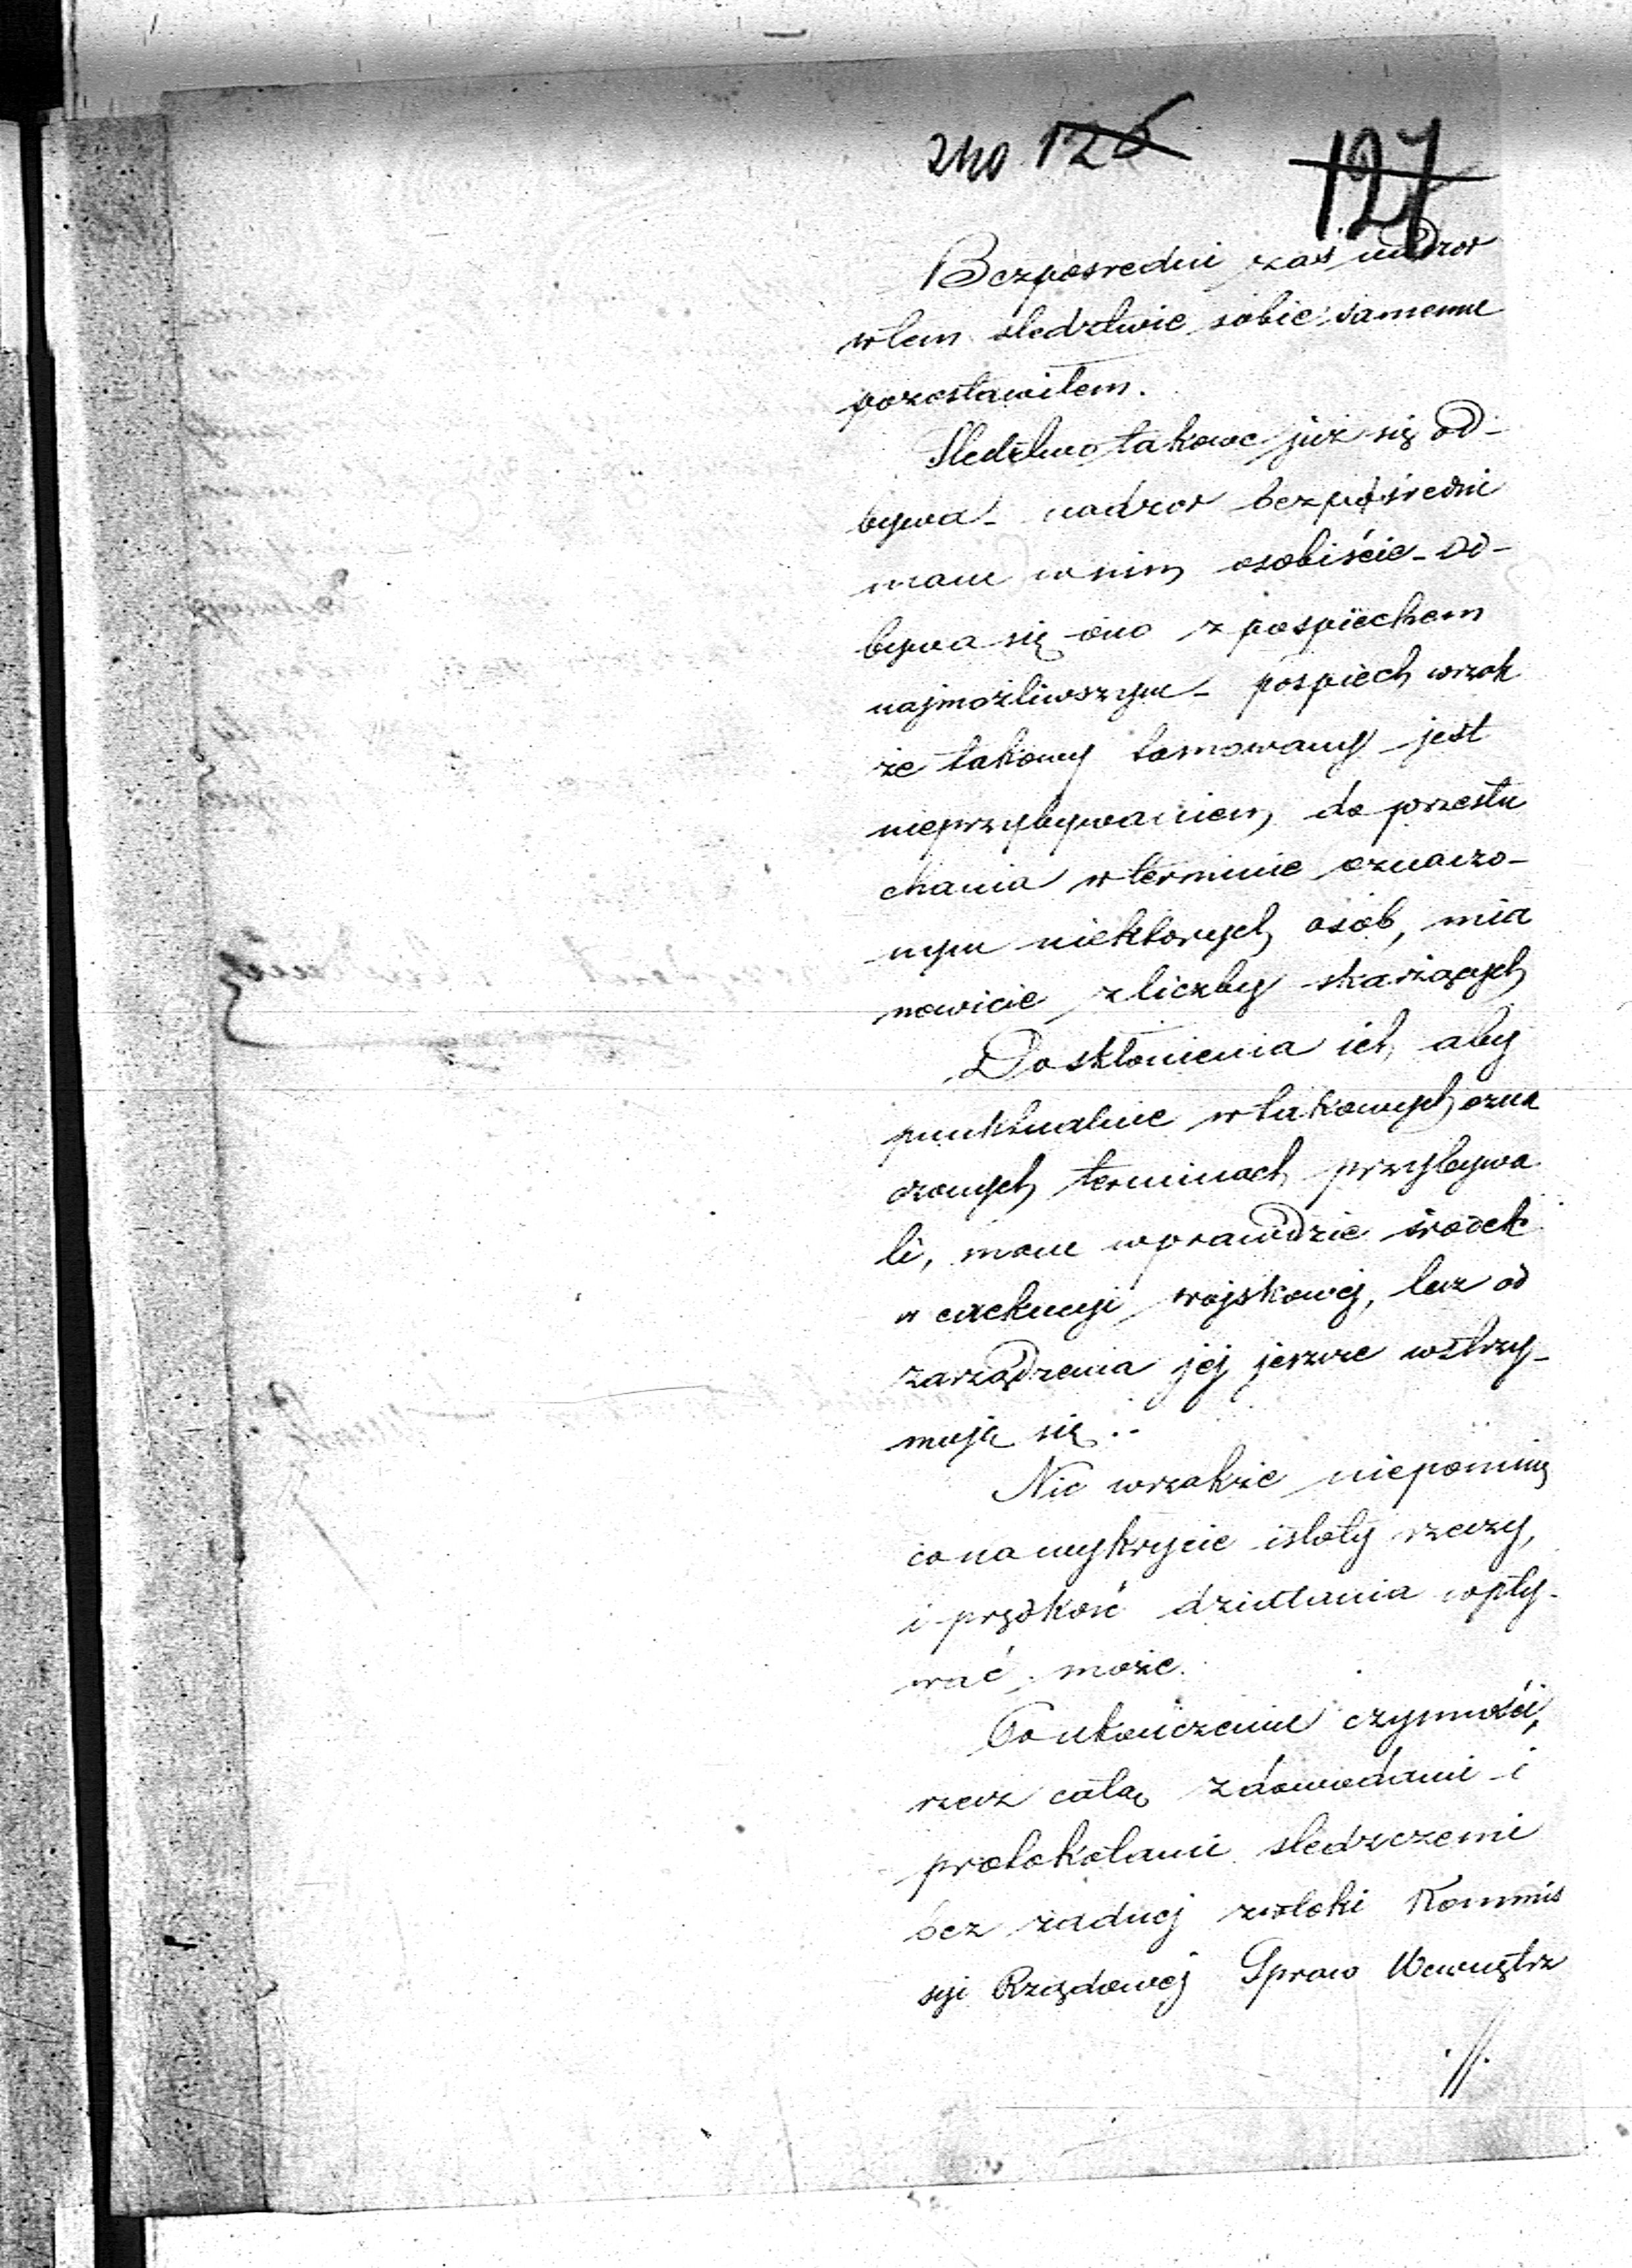 240 126 127
Bezpośredni zaś nadzor
w tem sledztwie sobie samemu
pozostawiłem.
Sledztwo takowe już się od-
bywa - nadzor bezpośredni
mam w nim osobiście - od-
bywa się ono z pospiechem
najmożliwszym - pospiech wszak
że takowy tamowany jest
nieprzybywaniem do przesłu
chania w terminie oznaczo-
nym niektorych osób, mia
nowicie z liczby skarżących
Do skłonienia ich, aby
punktualnie w takowych ozna
czonych terminach przybywa
li, mam wprawdzie środek
w exekucyi wojskowej, lecz od
zarządzenia jej jeszcze wstrzy-
muję się..
Nic wszakże niepominę
co na wykrycie istoty rzeczy,
i prędkość działania wpły-
wać może.
Po ukończeniu czynności,
rzecz całą z dowodami i
protokołami sledczemi
bez żadnej zwłoki Kommis
syi Rządowej Spraw Wewnętrz
.//.